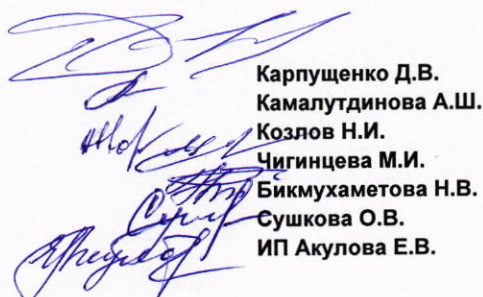 Карпущенко Д.В.
Камалутдинова А.Ш.
Козлов Н.И.
Чигинцева М.И.
Бикмухаметова Н.В.
Сушкова О.В.
ИП Акулова Е.В.